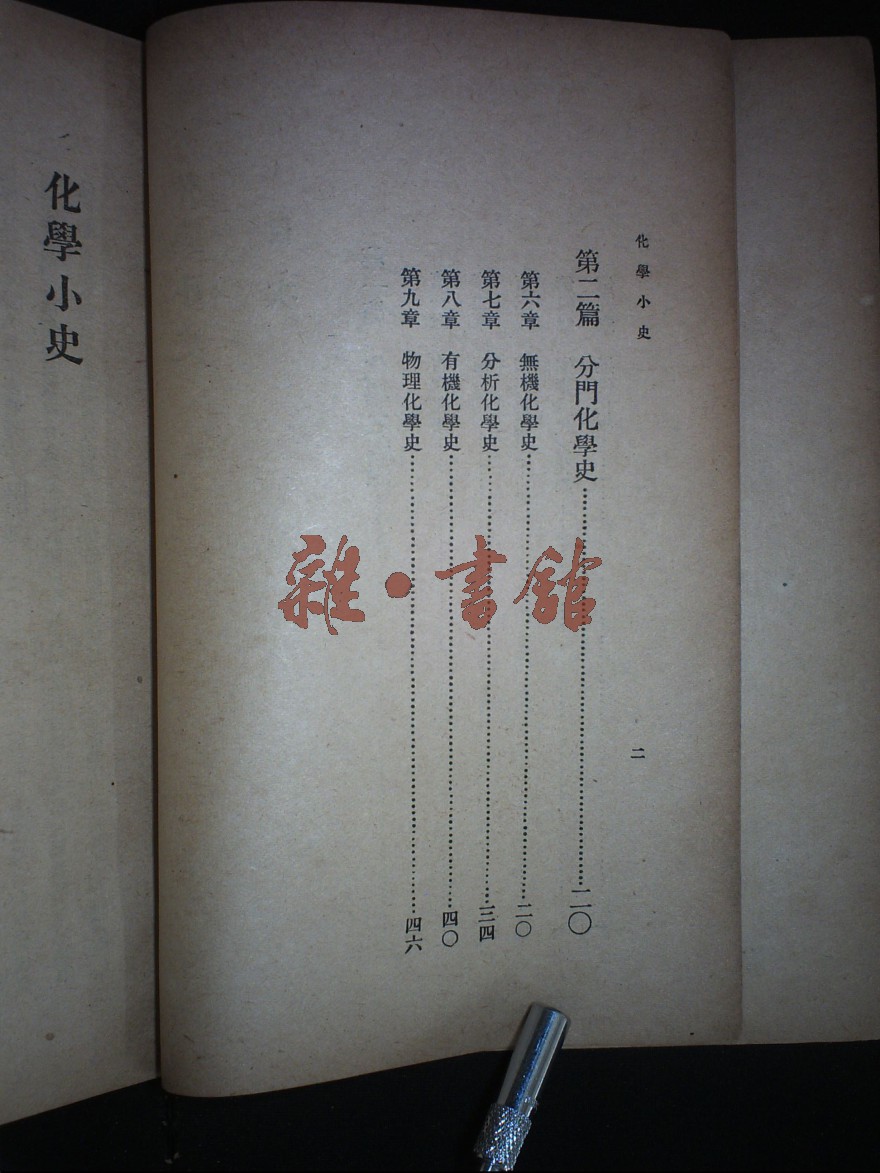 化學小史
二
第二篇 分門化學史……二〇
第六章 無機化學史……二〇
第七章 分析化學史……三四
第八章 有機化學史……四〇
第九章 物理化學史……四六
化學小史
雜·書館